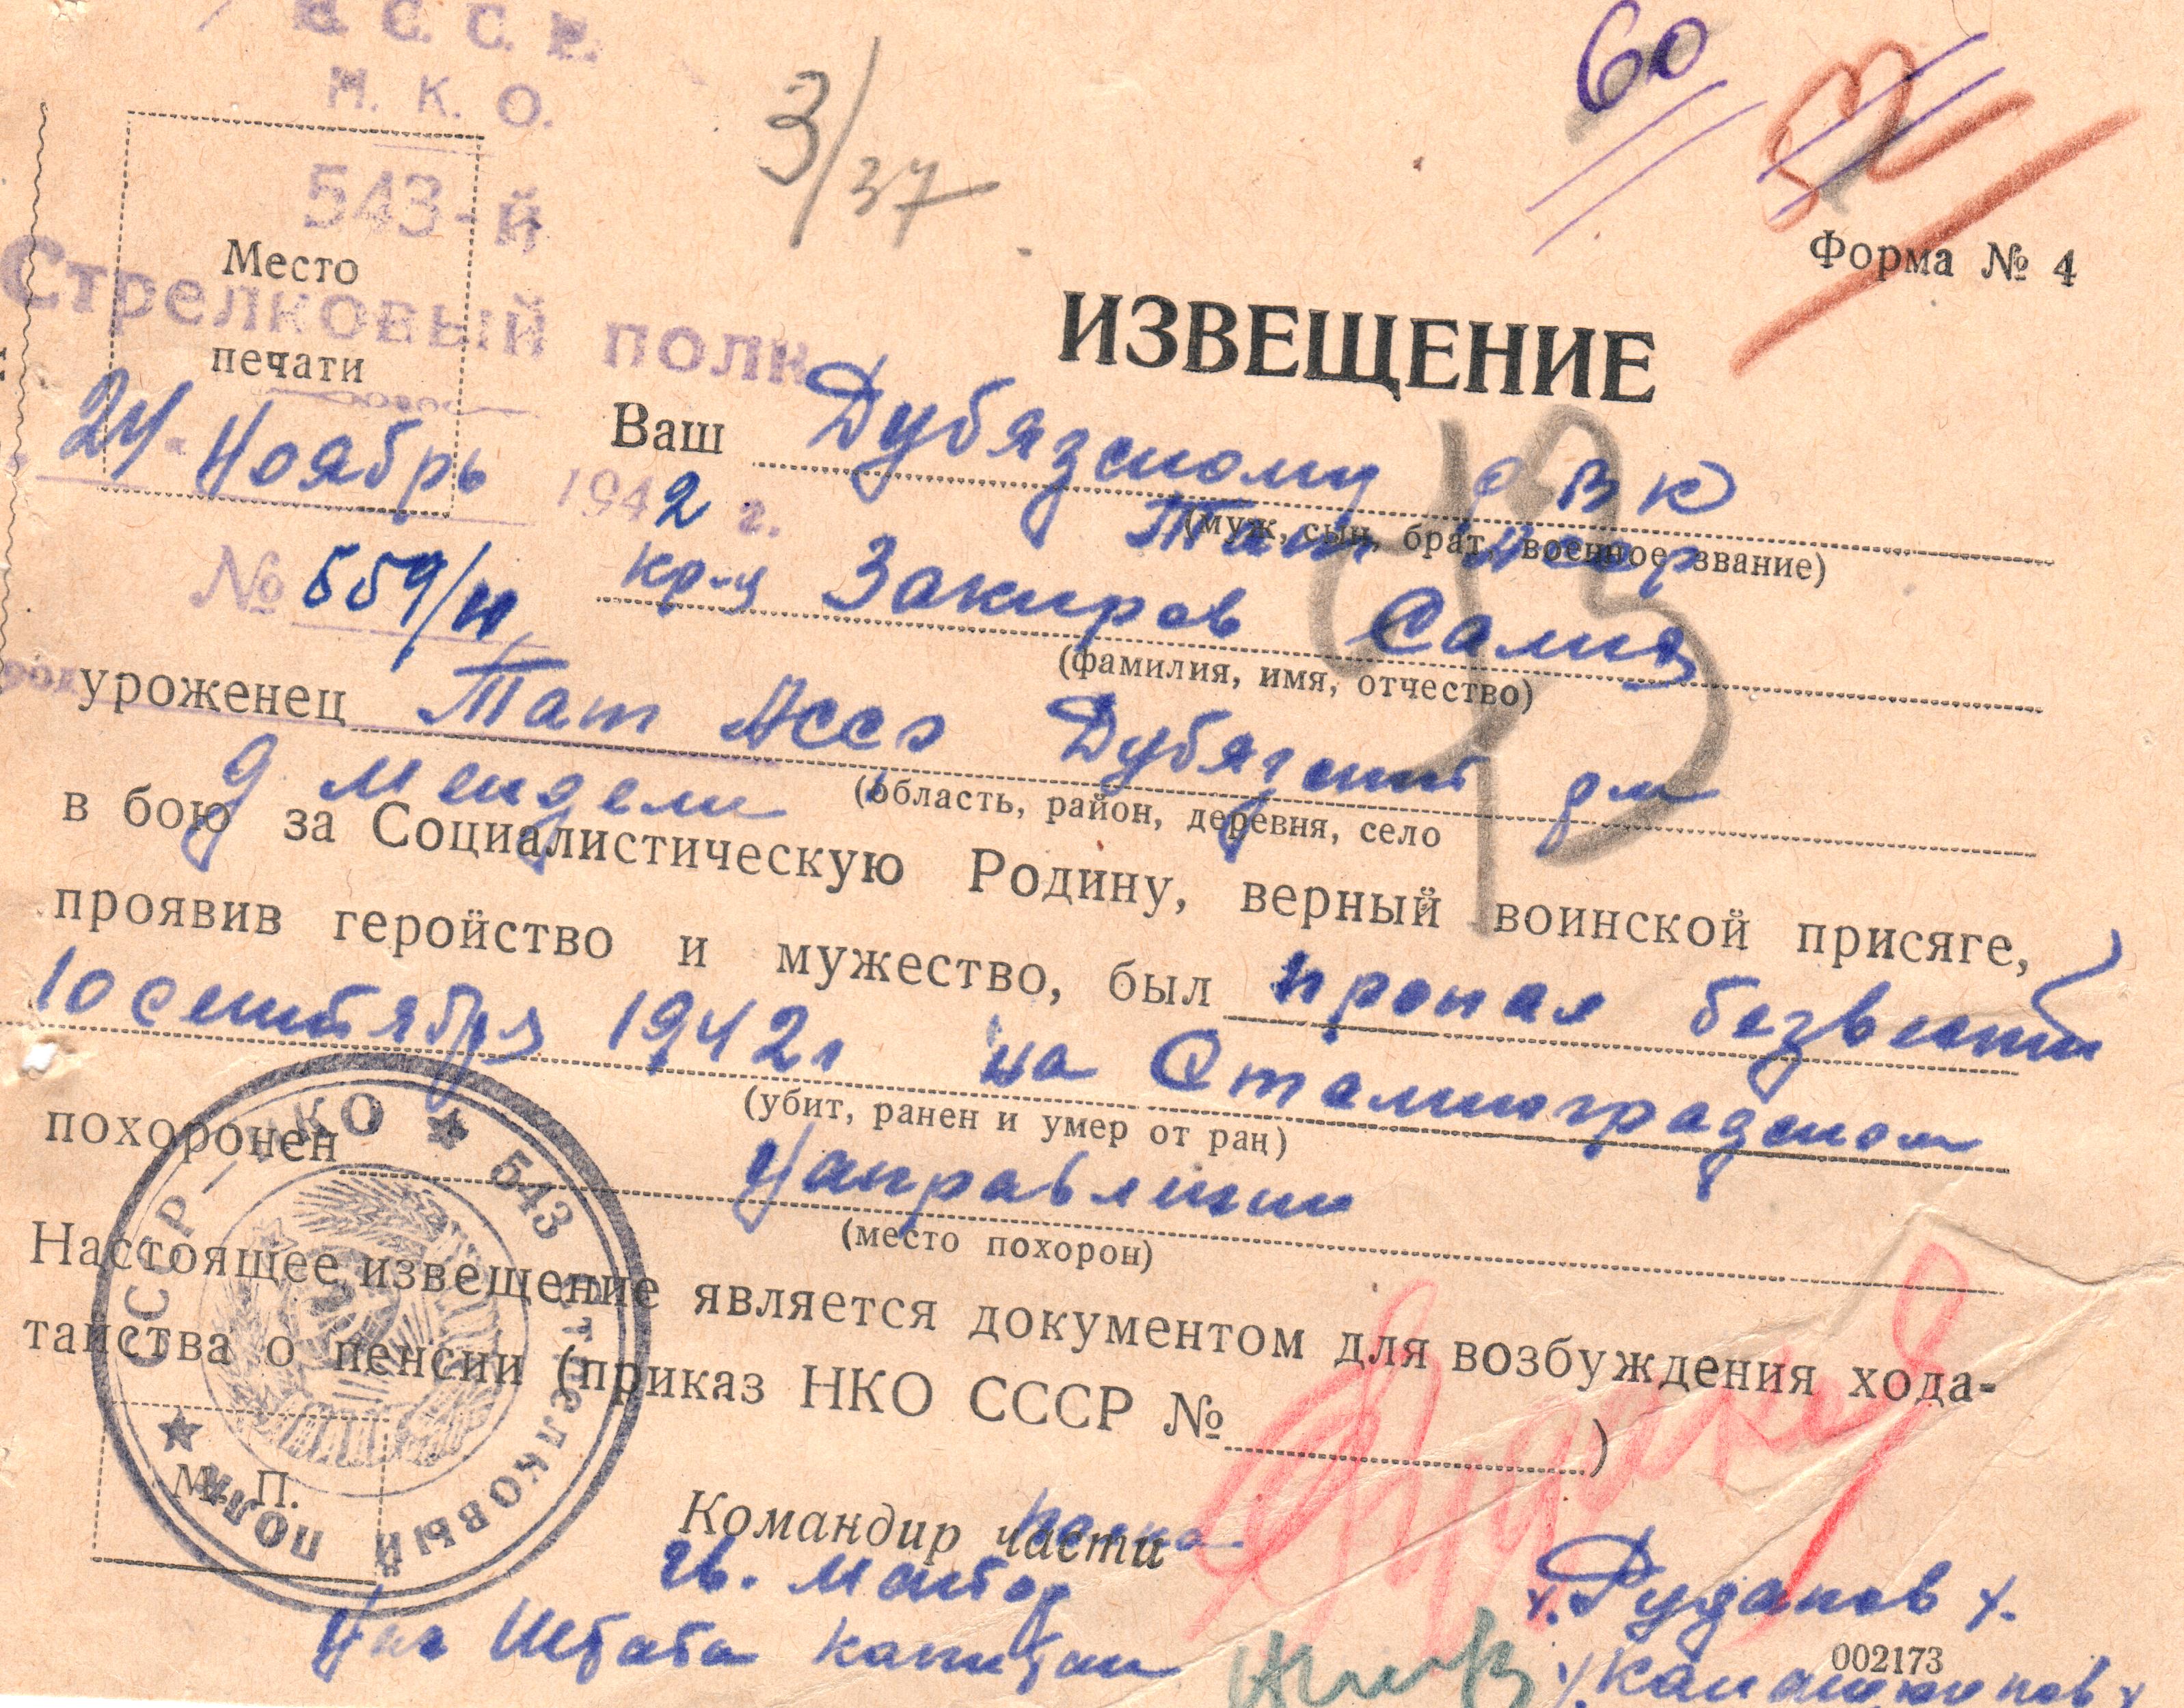 С. С. Р.
Н. К. О.
543-й
Стрелковый полк
3/37
60
Форма № 4
Место
печати
ИЗВЕЩЕНИЕ
24 Ноябрь 1942 г.
№ 559/н
Ваш Дубязскому РВК
Тат Асср
(муж, сын, брат, военное звание)
кр-ц Закиров Салих
(фамилия, имя, отчество)
уроженец Тат Асср Дубязский
д Мендели
(область, район, деревня, село
в бою за Социалистическую Родину, верный воинской присяге,
проявив геройство и мужество, был пропал безвести
10 сентября 1942г на Сталинградском
(убит, ранен и умер от ран)
похоронен направлении
(место похорон)
Настоящее извещение является документом для возбуждения хода-
тайства о пенсии (приказ НКО СССР №)
СССР-НКО ★ 543 Стрелковый полк ★
М. П.
Командир части полка
гв. майор
Нач Штаба капитан
002173